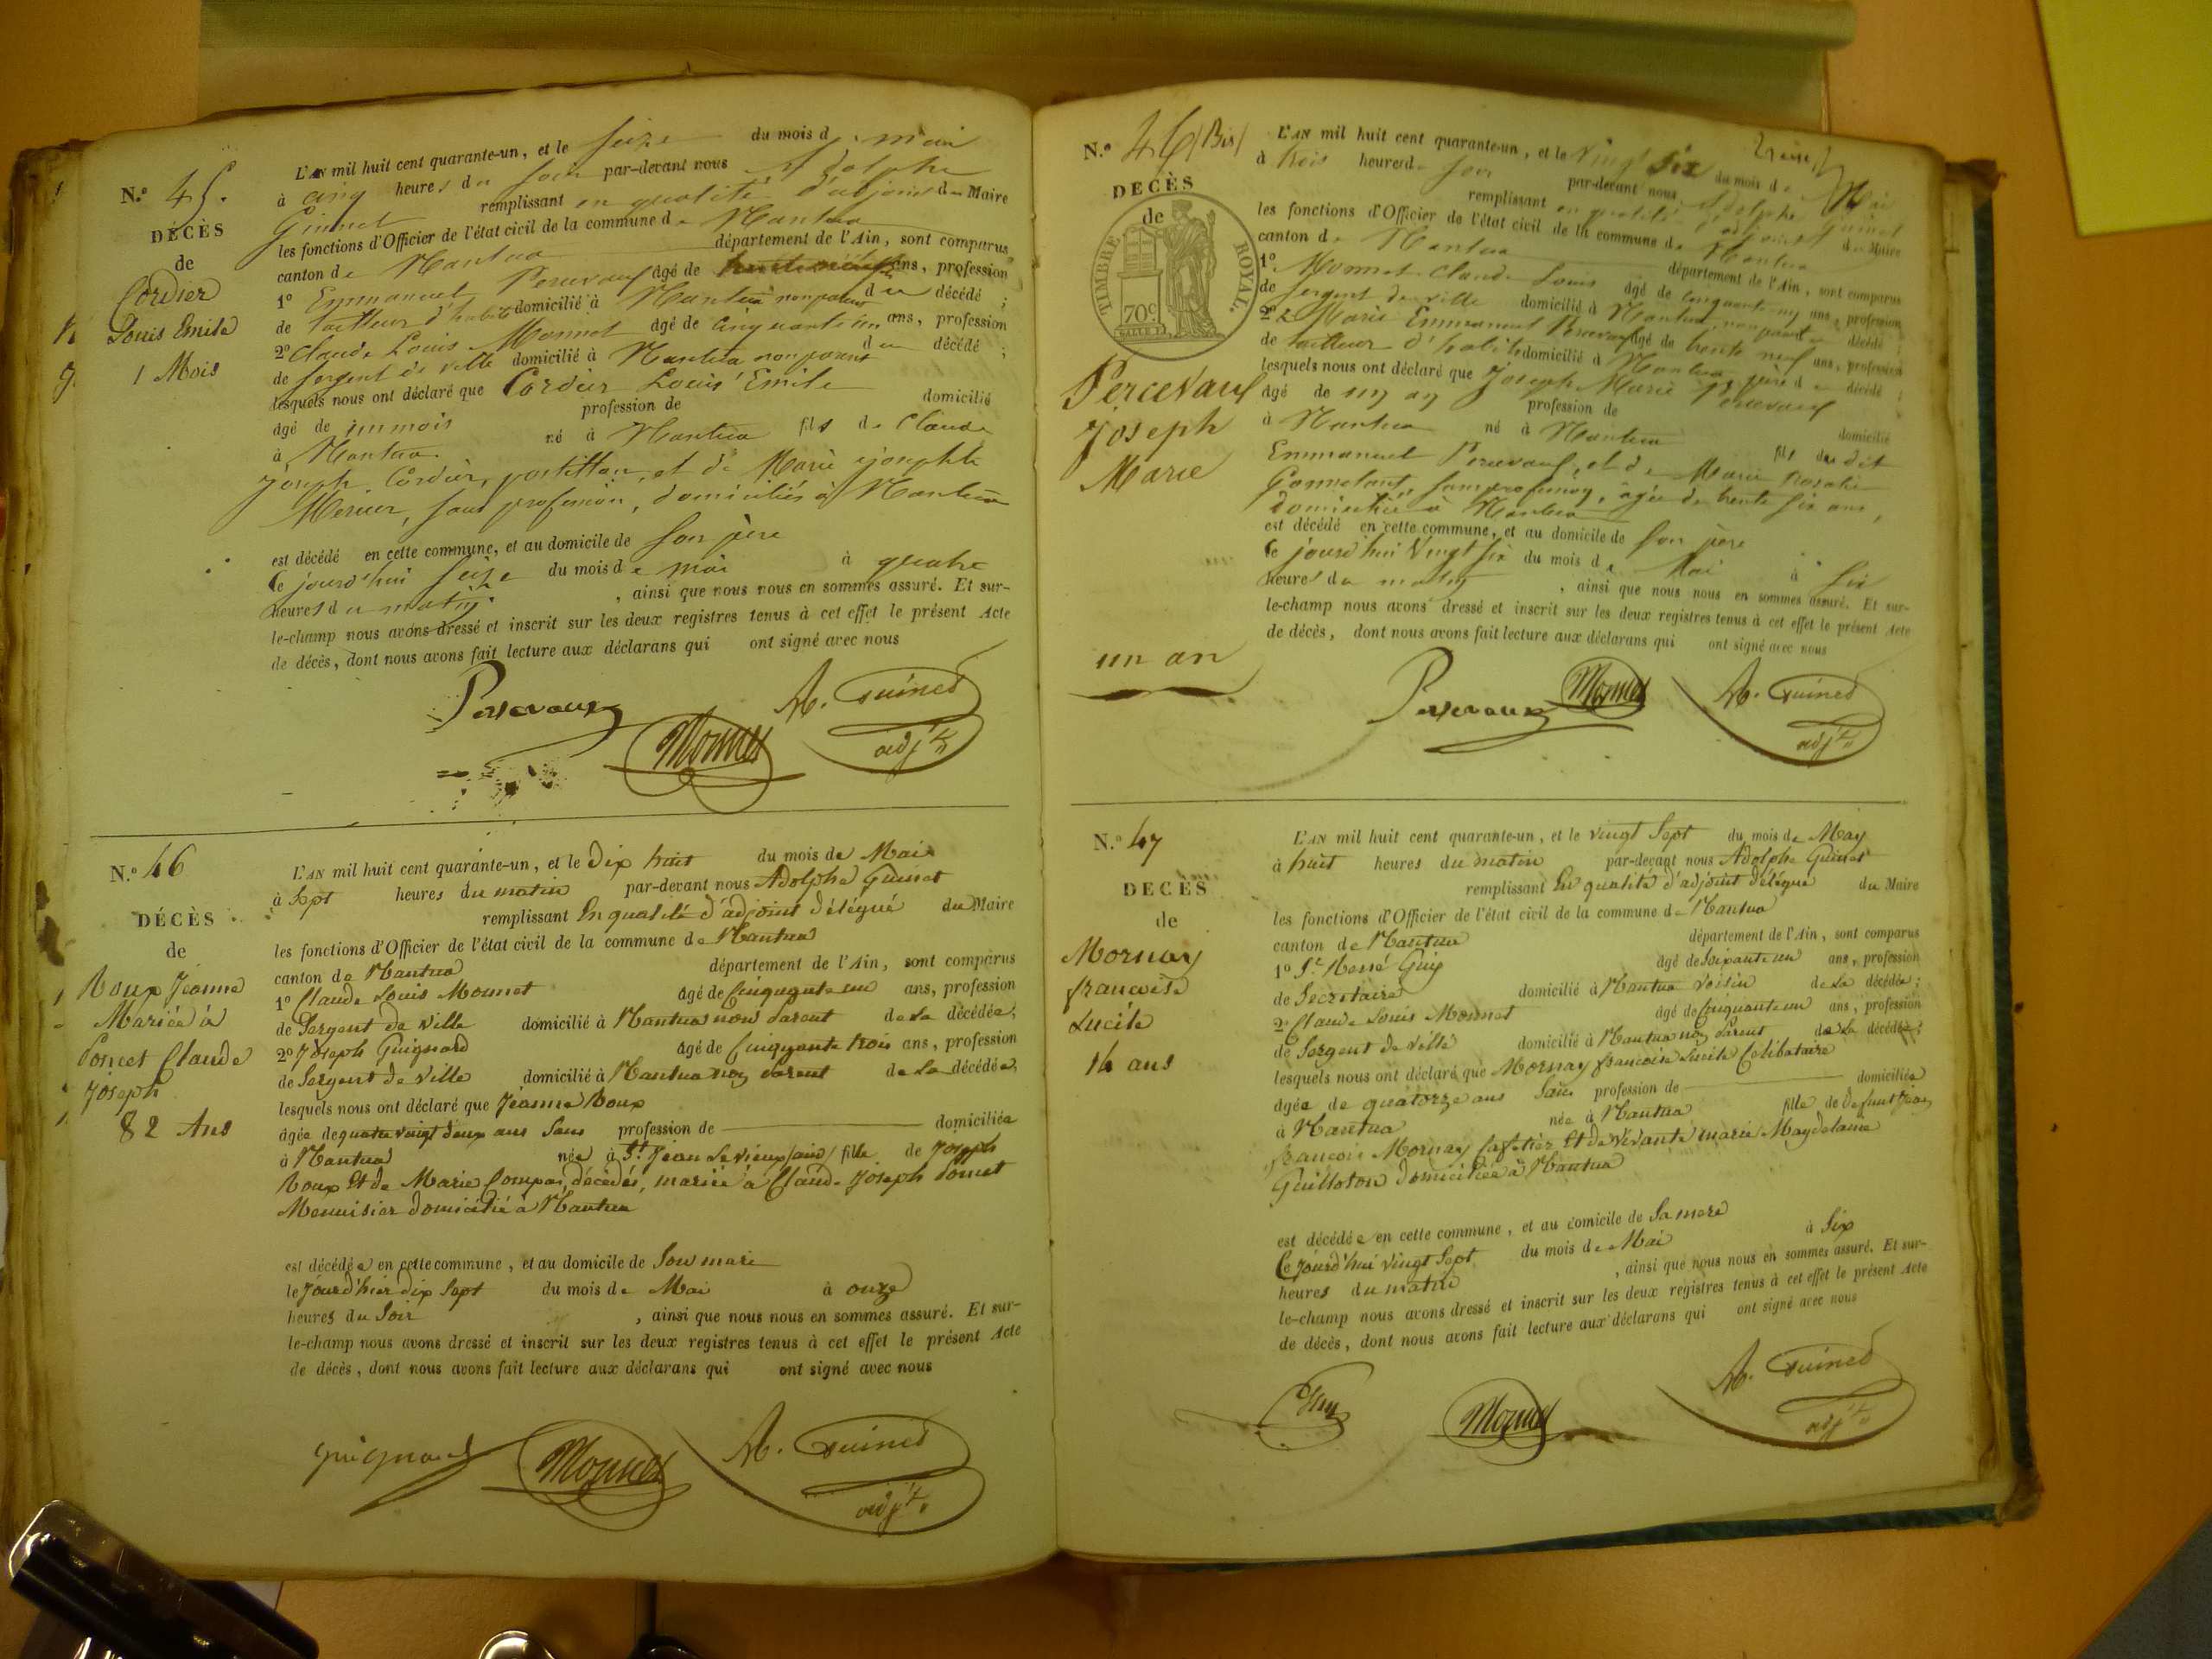 N.º 45.
DÉCÈS
de
Cordier
Louis Emile
1 Mois
L'AN mil huit cent quarante-un, et le seize du mois de mai
à cinq heures du soir par-devant nous Adolphe
Guinet remplissant en qualité d'adjoint du Maire
les fonctions d'Officier de l'état civil de la commune de Nantua
canton de Nantua département de l'Ain, sont comparus
1º Emmanuel Percevaux âgé de ans, profession
de tailleur d'habits domicilié à Nantua non parent du décédé ;
2º Claude Louis Monnet âgé de cinquante un ans, profession
de sergent de ville domicilié à Nantua non parent du décédé ;
lesquels nous ont déclaré que Cordier Louis Emile
âgé de un mois profession de domicilié
à Nantua né à Nantua fils de Claude
Joseph Cordier, postillon, et de Marie Josephte
Mercier, sans profession, domiciliés à Nantua
est décédé en cette commune, et au domicile de son père
le jourd'hui seize du mois de mai à quatre
heures du matin , ainsi que nous nous en sommes assuré. Et sur-
le-champ nous avons dressé et inscrit sur les deux registres tenus à cet effet le présent Acte
de décès, dont nous avons fait lecture aux déclarans qui ont signé avec nous
Persevaux
Monnet
A. Guinet
adjt
N.º 46
DÉCÈS
de
Roux Jeanne
Mariée à
Poncet Claude
Joseph
82 Ans
L'AN mil huit cent quarante-un, et le dix huit du mois de Mai
à sept heures du matin par-devant nous Adolphe Guinet
remplissant En qualité d'adjoint délégué du Maire
les fonctions d'Officier de l'état civil de la commune de Nantua
canton de Nantua département de l'Ain, sont comparus
1º Claude Louis Monnet âgé de Cinquante un ans, profession
de Sergent de ville domicilié à Nantua non parent de La décédée ;
2º Joseph Guignard âgé de Cinquante trois ans, profession
de Sergent de Ville domicilié à Nantua non parent de La décédée ;
lesquels nous ont déclaré que Jeanne Roux
âgée de quatre vingt deux ans Sans profession de domiciliée
à Nantua née à St Jean Le vieux (ain) fille de Joseph
Roux Et de Marie Compas, décédés, mariée à Claude Joseph Poncet
Menuisier domicilié à Nantua
est décédée en cette commune, et au domicile de Son mari
le Jourd'hier dix Sept du mois de Mai à onze
heures du Soir , ainsi que nous nous en sommes assuré. Et sur-
le-champ nous avons dressé et inscrit sur les deux registres tenus à cet effet le présent Acte
de décès, dont nous avons fait lecture aux déclarans qui ont signé avec nous
Guignard
Monnet
A. Guinet
adjt
N.º 46 (Bis)
DÉCÈS
de
TIMBRE ROYAL.
70c.
Percevaux
Joseph
Marie
un an
L'AN mil huit cent quarante-un, et le vingt six du mois de Mai
à trois heures du soir par-devant nous Adolphe Guinet
remplissant en qualité d'adjoint du Maire
les fonctions d'Officier de l'état civil de la commune de Nantua
canton de Nantua département de l'Ain, sont comparus
1º Monnet Claude Louis âgé de cinquante un ans, profession
de sergent de ville domicilié à Nantua, non parent du décédé ;
2º Marie Emmanuel Percevaux âgé de trente neuf ans, profession
de tailleur d'habits domicilié à Nantua père du décédé ;
lesquels nous ont déclaré que Joseph Marie Percevaux
âgé de un an profession de domicilié
à Nantua né à Nantua fils du dit
Emmanuel Percevaux, et de Marie Rosalie
sans profession, âgée de trente six ans,
domiciliée à Nantua
est décédé en cette commune, et au domicile de son père
le jourd'hui vingt six du mois de Mai à six
heures du matin , ainsi que nous nous en sommes assuré. Et sur-
le-champ nous avons dressé et inscrit sur les deux registres tenus à cet effet le présent Acte
de décès, dont nous avons fait lecture aux déclarans qui ont signé avec nous
Persevaux
Monnet
A. Guinet
adjt
N.º 47
DÉCÈS
de
Mornay
francoise
Lucile
14 ans
L'AN mil huit cent quarante-un, et le vingt Sept du mois de May
à huit heures du matin par-devant nous Adolphe Guinet
remplissant En qualité d'adjoint délégué du Maire
les fonctions d'Officier de l'état civil de la commune de Nantua
canton de Nantua département de l'Ain, sont comparus
1º Guy âgé de Soixante un ans, profession
de Secrétaire domicilié à Nantua Voisin de La décédée ;
2º Claude Louis Monnet âgé de Cinquante un ans, profession
de Sergent de Ville domicilié à Nantua non Parent de La décédée ;
lesquels nous ont déclaré que Mornay francoise Lucile Célibataire
âgée de quatorze ans Sans profession de domiciliée
à Nantua née à Nantua fille de Defunt Jean
francois Mornay Cafetier Et de vivante marie Magdelaine
Guilloton domiciliée à Nantua
est décédée en cette commune, et au domicile de Sa mere
Ce Jourd'hui vingt Sept du mois de Mai à Six
heures du matin , ainsi que nous nous en sommes assuré. Et sur-
le-champ nous avons dressé et inscrit sur les deux registres tenus à cet effet le présent Acte
de décès, dont nous avons fait lecture aux déclarans qui ont signé avec nous
Guy
Monnet
A. Guinet
adjt